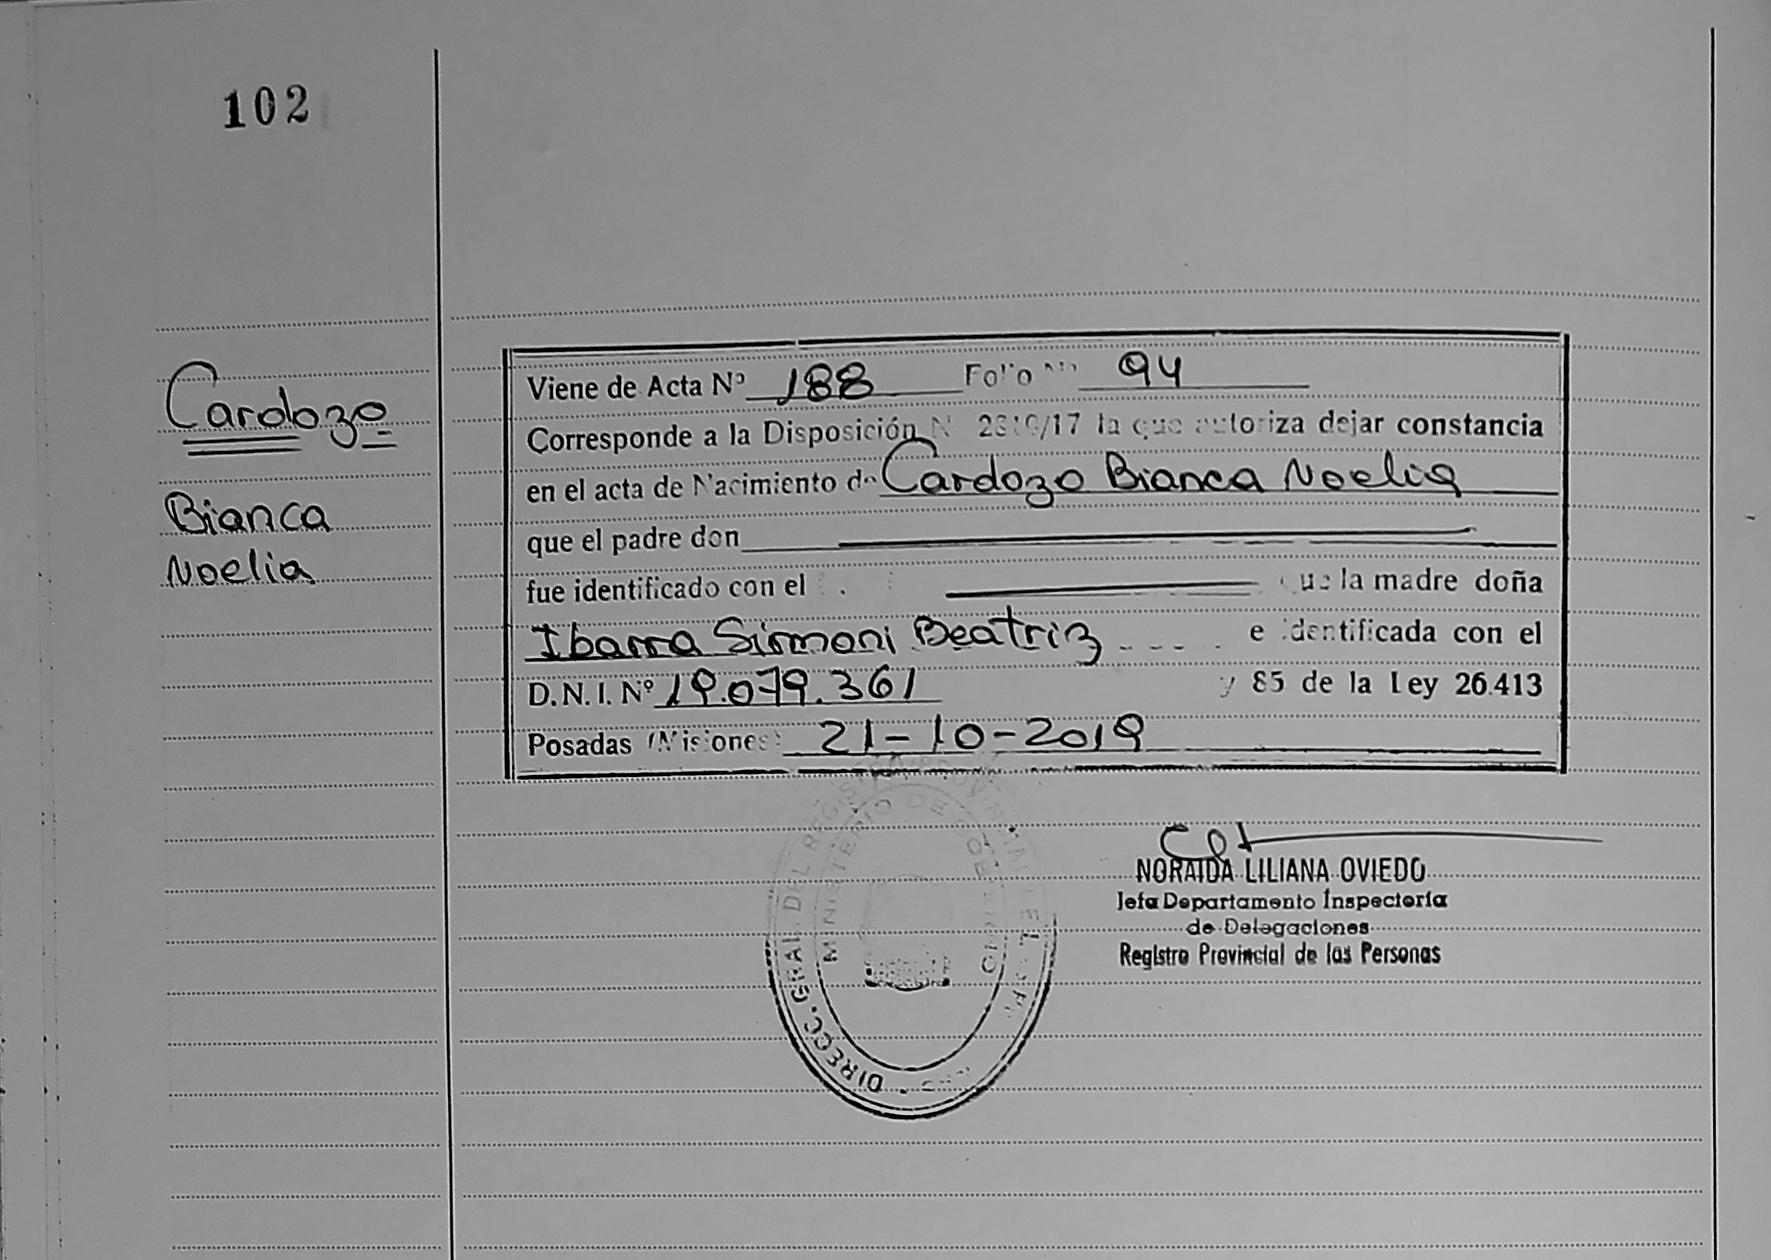 102
Cardozo
Bianca
Noelia
Viene de Acta Nº 188 Folio 94
Corresponde a la Disposición N /17 la que autoriza dejar constancia
en el acta de Nacimiento de Cardozo Bianca Noelia
que el padre don
fue identificado con el que la madre doña
Ibarra Simoni Beatriz e identificada con el
D.N.I. Nº 19.079.361 y 85 de la Ley 26.413
Posadas (Misiones) 21-10-2019
NORAIDA LILIANA OVIEDO
Jefa Departamento Inspectoría
de Delegaciones
Registro Provincial de las Personas
DIRECC. GRAL. DEL REGISTRO PROVINCIAL DE
MINISTERIO DE GOBIERNO